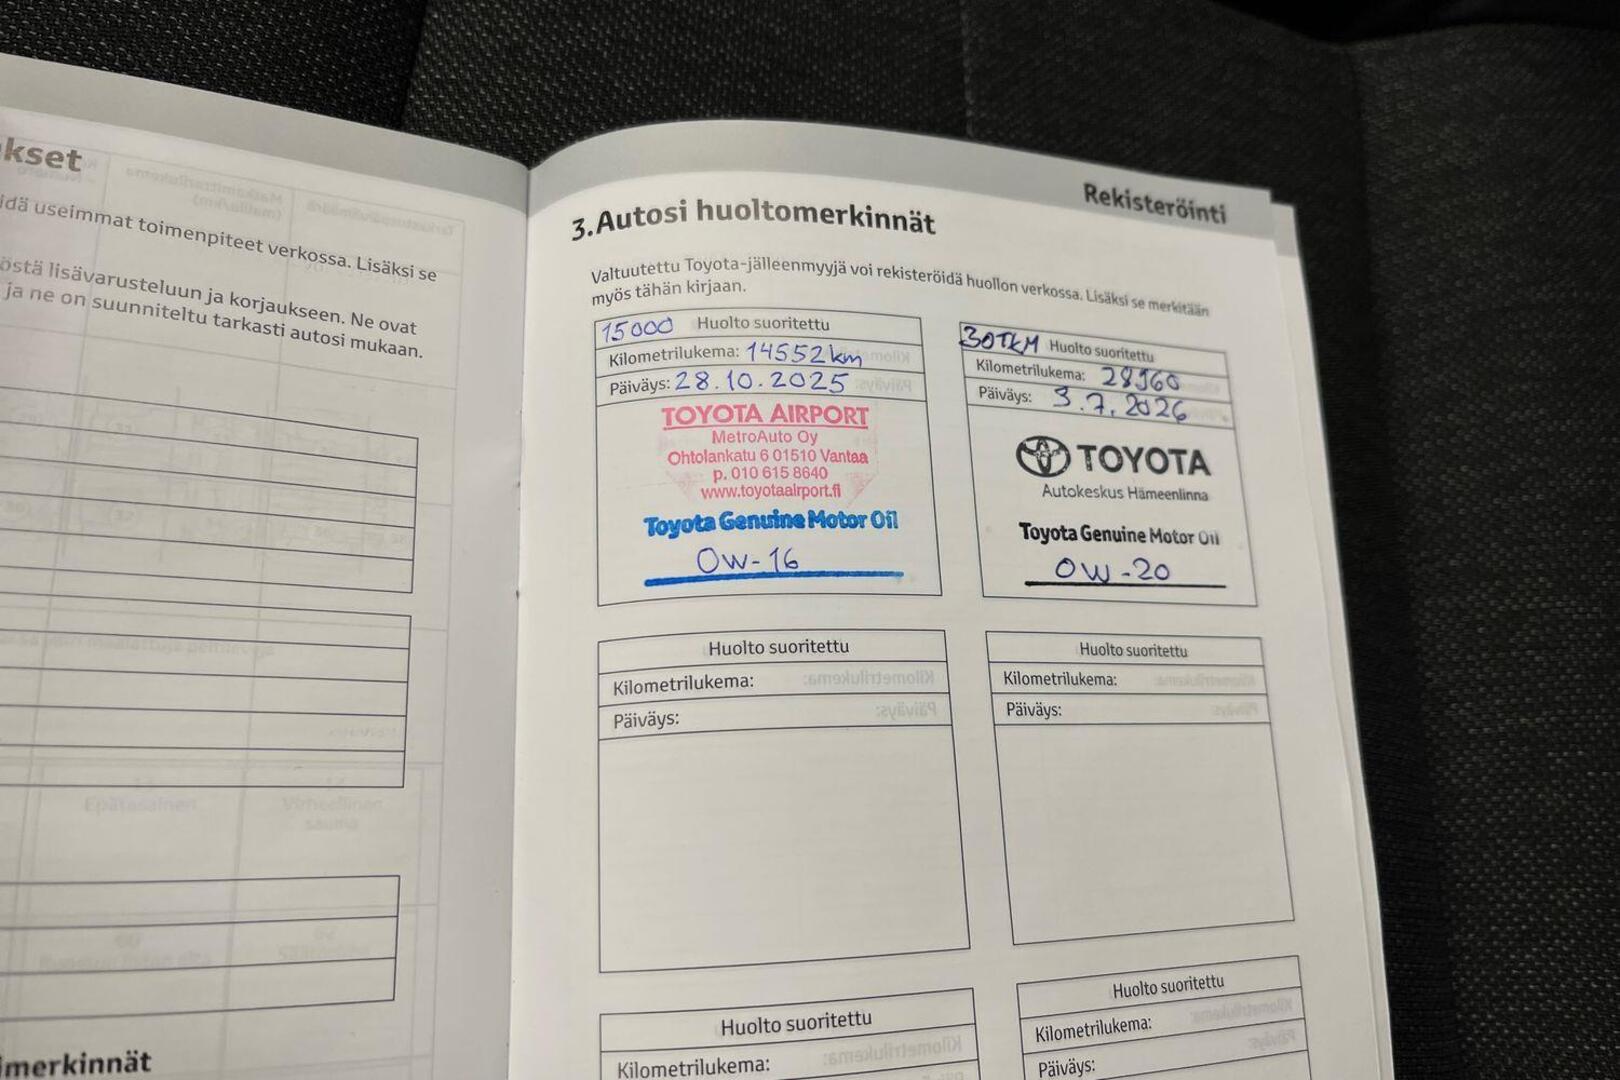 kset
idä useimmat toimenpiteet verkossa. Lisäksi se
östä lisävarusteluun ja korjaukseen. Ne ovat
ja ne on suunniteltu tarkasti autosi mukaan.
merkinnät
Rekisteröinti
3. Autosi huoltomerkinnät
Valtuutettu Toyota-jälleenmyyjä voi rekisteröidä huollon verkossa. Lisäksi se merkitään
myös tähän kirjaan.
15000 Huolto suoritettu
Kilometrilukema: 14552 km
Päiväys: 28.10.2025
TOYOTA AIRPORT
MetroAuto Oy
Ohtolankatu 6 01510 Vantaa
p. 010 615 8640
www.toyotaairport.fi
Toyota Genuine Motor Oil
0W-16
30TKM Huolto suoritettu
Kilometrilukema: 28960
Päiväys: 3.7.2026
TOYOTA
Autokeskus Hämeenlinna
Toyota Genuine Motor Oil
0W-20
Huolto suoritettu
Kilometrilukema:
Päiväys:
Huolto suoritettu
Kilometrilukema:
Päiväys:
Huolto suoritettu
Kilometrilukema:
Huolto suoritettu
Kilometrilukema:
Päiväys: